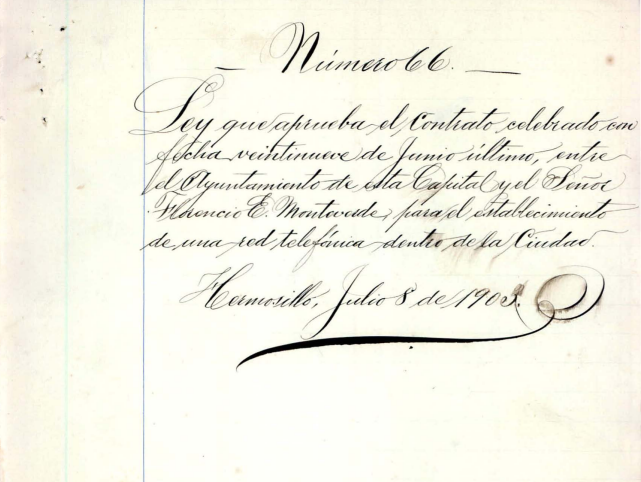 — Número 66. —
Ley que aprueba el Contrato celebrado con
fecha veintinueve de Junio último, entre
el Ayuntamiento de esta Capital y el Señor
Florencio E. Monteverde, para el establecimiento
de una red telefónica dentro de la Ciudad.
Hermosillo, Julio 8 de